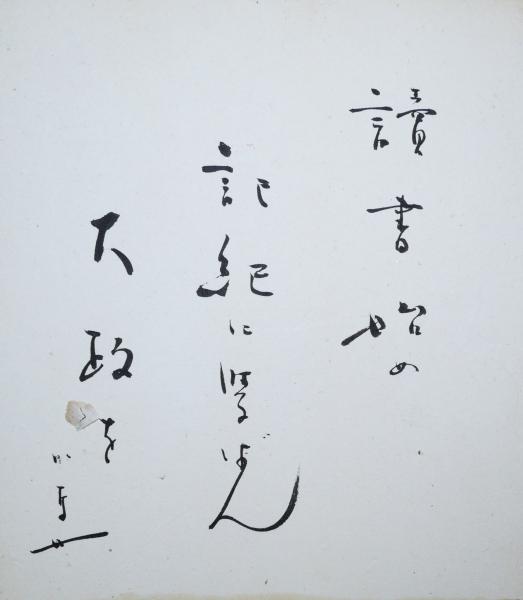 讀書始め
記紀に學ばん
大政を